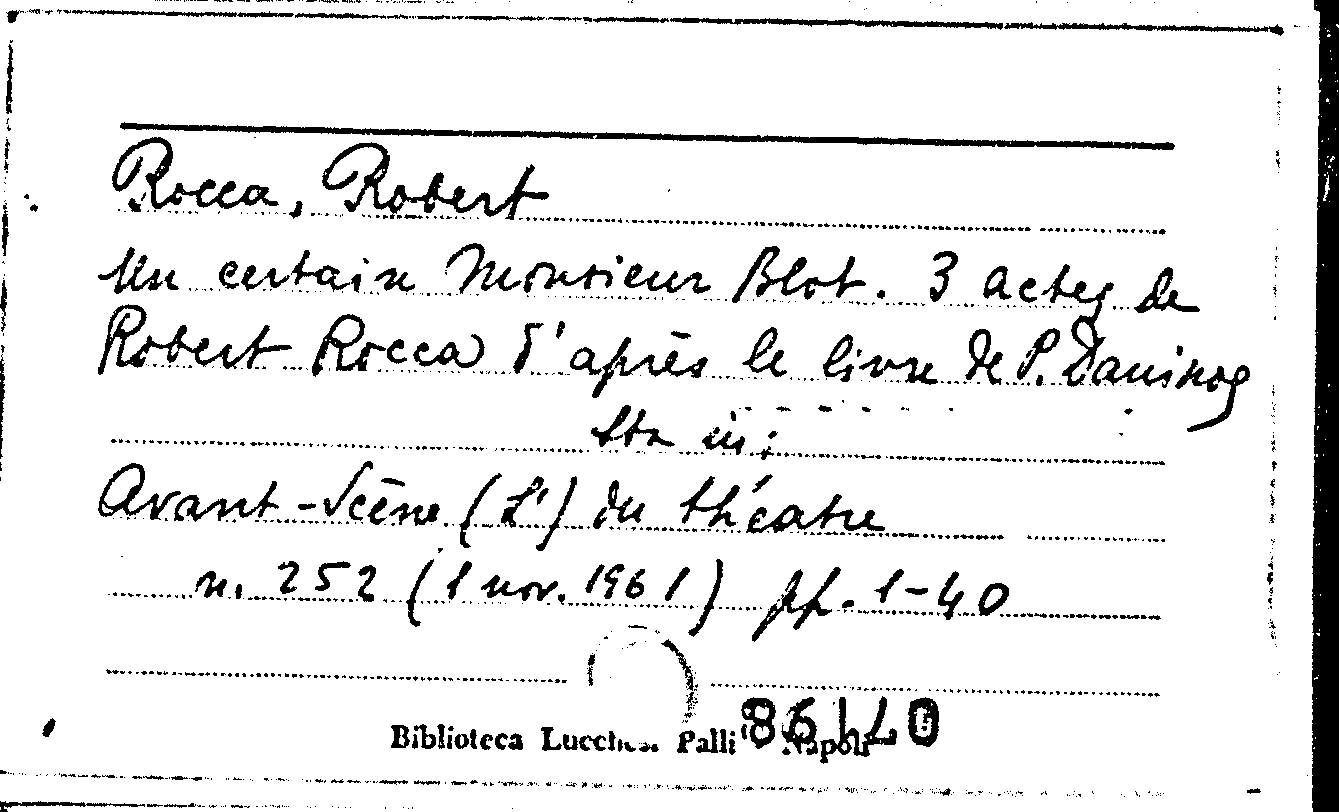 Rocca, Robert
Un certain Monsieur Blot. 3 actes de
Robert Rocca d'après le livre de P. Daninos
Sta in:
Avant-Scène (L') du théatre
n. 252 (1 nov. 1961) pp. 1-40
Biblioteca Lucchesi Palli Napoli